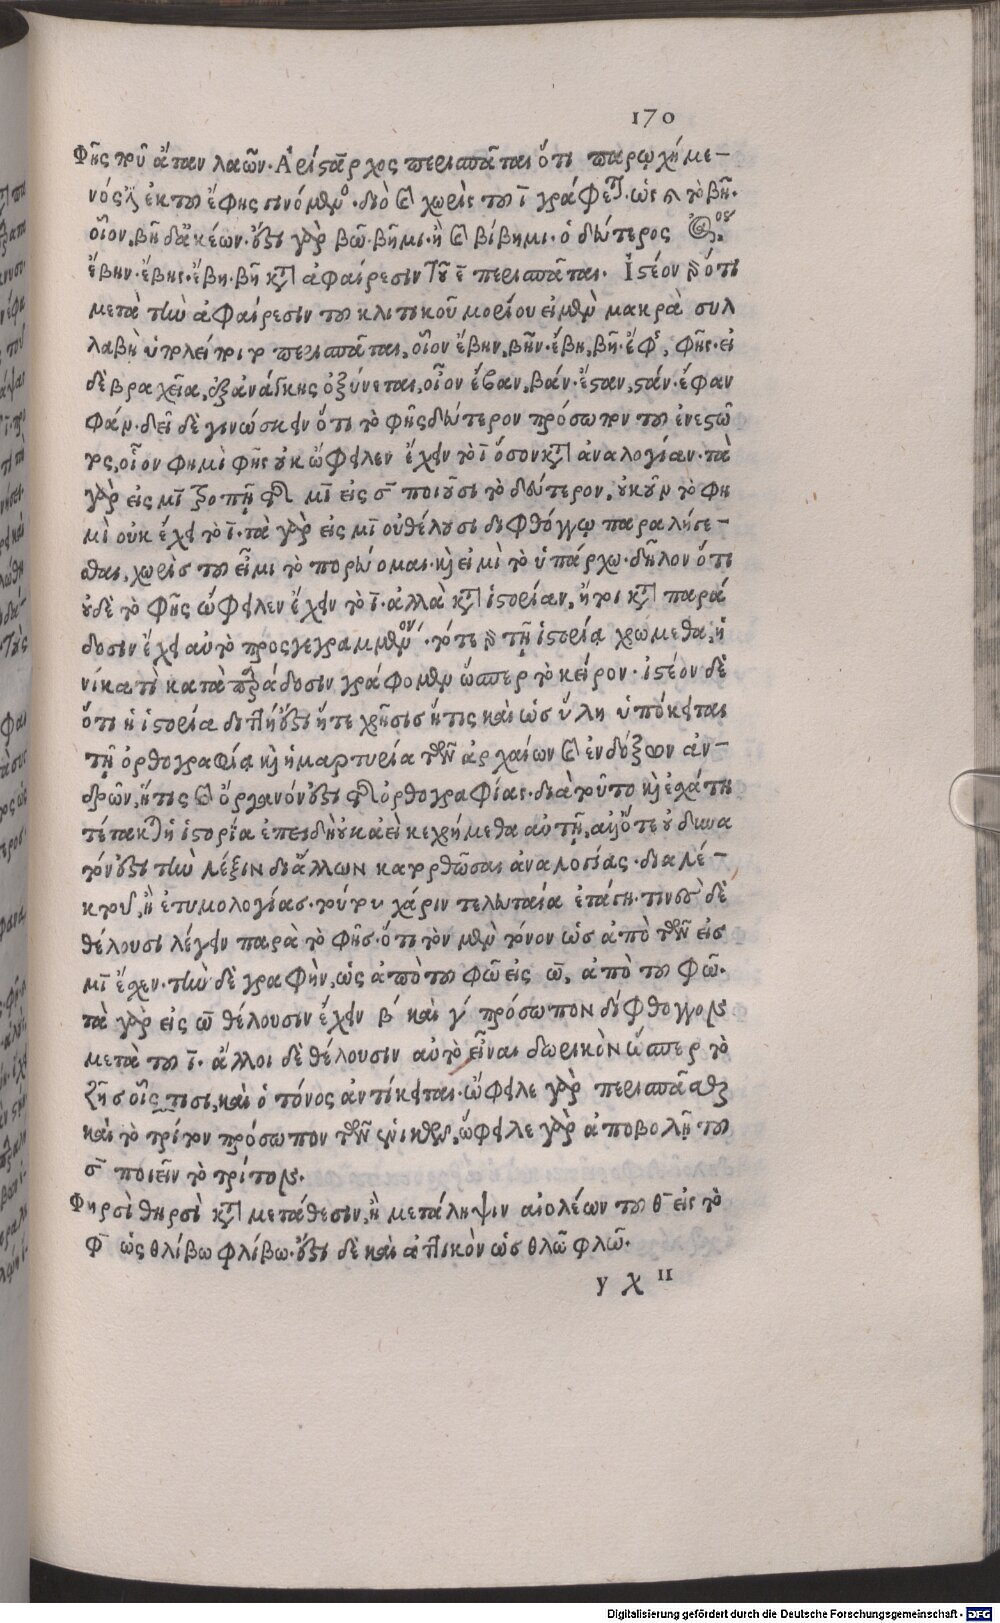 170
φῆς που ἅπαν λαῶν. Ἀρίσταρχος περισπᾶται ὅτι παρῳχημε-
νός ἐστιν ἐκ τοῦ ἔφης συνόμενος. διὸ καὶ χωρὶς τοῦ ῑ γράφεται. ὡς καὶ τὸ βῆ.
οἷον, βῆ δ' ἀκέων. ἔστι γὰρ βῶ. βῆμι. ἢ καὶ βίβημι. ὁ δεύτερος
ἔβην. ἔβης. ἔβη. βῆ κατὰ ἀφαίρεσιν τοῦ ε̄ περισπᾶται. Ἰστέον δὲ ὅτι
μετὰ τὴν ἀφαίρεσιν τοῦ κλιτικοῦ μορίου εἰ μὲν μακρὰ συλ
λαβὴ περισπᾶται, οἷον ἔβην, βῆν. ἔβη, βῆ. ἔφης, φῆς. εἰ
δὲ βραχεῖα, ἐξ ἀνάγκης ὀξύνεται, οἷον ἔβαν, βάν. ἔσταν, στάν. ἔφαν
φάν. δεῖ δὲ γινώσκειν ὅτι τὸ φῆς δεύτερον πρόσωπον τοῦ ἐνεστῶ
τος, οἷον φημὶ φῆς οὐκ ὤφειλεν ἔχειν τὸ ῑ ὅσον κατὰ ἀναλογίαν. τὰ
γὰρ εἰς μῑ τροπῇ τῆς μῑ εἰς σ̄ ποιοῦσι τὸ δεύτερον. οὐκοῦν τὸ φη
μὶ οὐκ ἔχει τὸ ῑ. τὰ γὰρ εἰς μῑ οὐ θέλουσι διφθόγγῳ παραλήγε-
σθαι, χωρὶς τοῦ εἶμι τὸ πορεύομαι. καὶ εἰμὶ τὸ ὑπάρχω. δῆλον ὅτι
οὐδὲ τὸ φῆς ὤφειλεν ἔχειν τὸ ῑ. ἀλλὰ κατὰ ἱστορίαν, ἤτοι κατὰ παρά
δοσιν ἔχει αὐτὸ προσγεγραμμένον. τότε δὲ τῇ ἱστορίᾳ χρώμεθα, ἡ
νίκα τὶ κατὰ παράδοσιν γράφομεν ὥσπερ τὸ κείρον. ἰστέον δὲ
ὅτι ἡ ἱστορία διπλῆ ἐστιν ἥτε χρῆσις ἥτις καὶ ὡς ὕλη ὑπόκειται
τῇ ὀρθογραφίᾳ καὶ ἡ μαρτυρία τῶν ἀρχαίων καὶ ἐνδόξων ἀν-
δρῶν, ἥτις καὶ ὄργανόν ἐστι τῆς ὀρθογραφίας. διὰ τοῦτο καὶ ἐσχάτη
τέτακται ἡ ἱστορία ἐπειδὴ οὐκ ἀεὶ κεχρήμεθα αὐτῇ, ἀλλ' ὅτε οὐ δυνα
τόν ἐστι τὴν λέξιν δι' ἄλλων κατορθῶσαι ἀναλογίας. διαλέ-
κτου, ἢ ἐτυμολογίας. τούτου χάριν τελευταία ἐτάγη. τινὲς δὲ
θέλουσι λέγειν παρὰ τὸ φῆς. ὅτι τὸν μὲν τόνον ὡς ἀπὸ τῶν εἰς
μῑ ἔσχεν. τὴν δὲ γραφὴν, ὡς ἀπὸ τοῦ φῶ εἰς ω̄, ἀπὸ τοῦ φῶ.
τὰ γὰρ εἰς ω̄ θέλουσιν ἔχειν β̄ καὶ γ̄ πρόσωπον δίφθογγον
μετὰ τοῦ ῑ. ἄλλοι δὲ θέλουσιν αὐτὸ εἶναι δωρικὸν ὥσπερ τὸ
ζῇς οἷς τισι, καὶ ὁ τόνος ἀντίκειται. ὤφειλε γὰρ περισπᾶσθαι
καὶ τὸ τρίτον πρόσωπον τῶν ἑνικῶν, ὤφειλε γὰρ ἀποβολῇ τοῦ
σ̄ ποιεῖν τὸ τρίτον.
Φηρσὶ θηρσὶ κατὰ μετάθεσιν, ἢ μετάληψιν αἰολέων τοῦ θ̄ εἰς τὸ
φ̄ ὡς θλίβω φλίβω. ἔστι δὲ καὶ ἀττικὸν ὡς θλῶ φλῶ.
y χ II
Digitalisierung gefördert durch die Deutsche Forschungsgemeinschaft - DFG